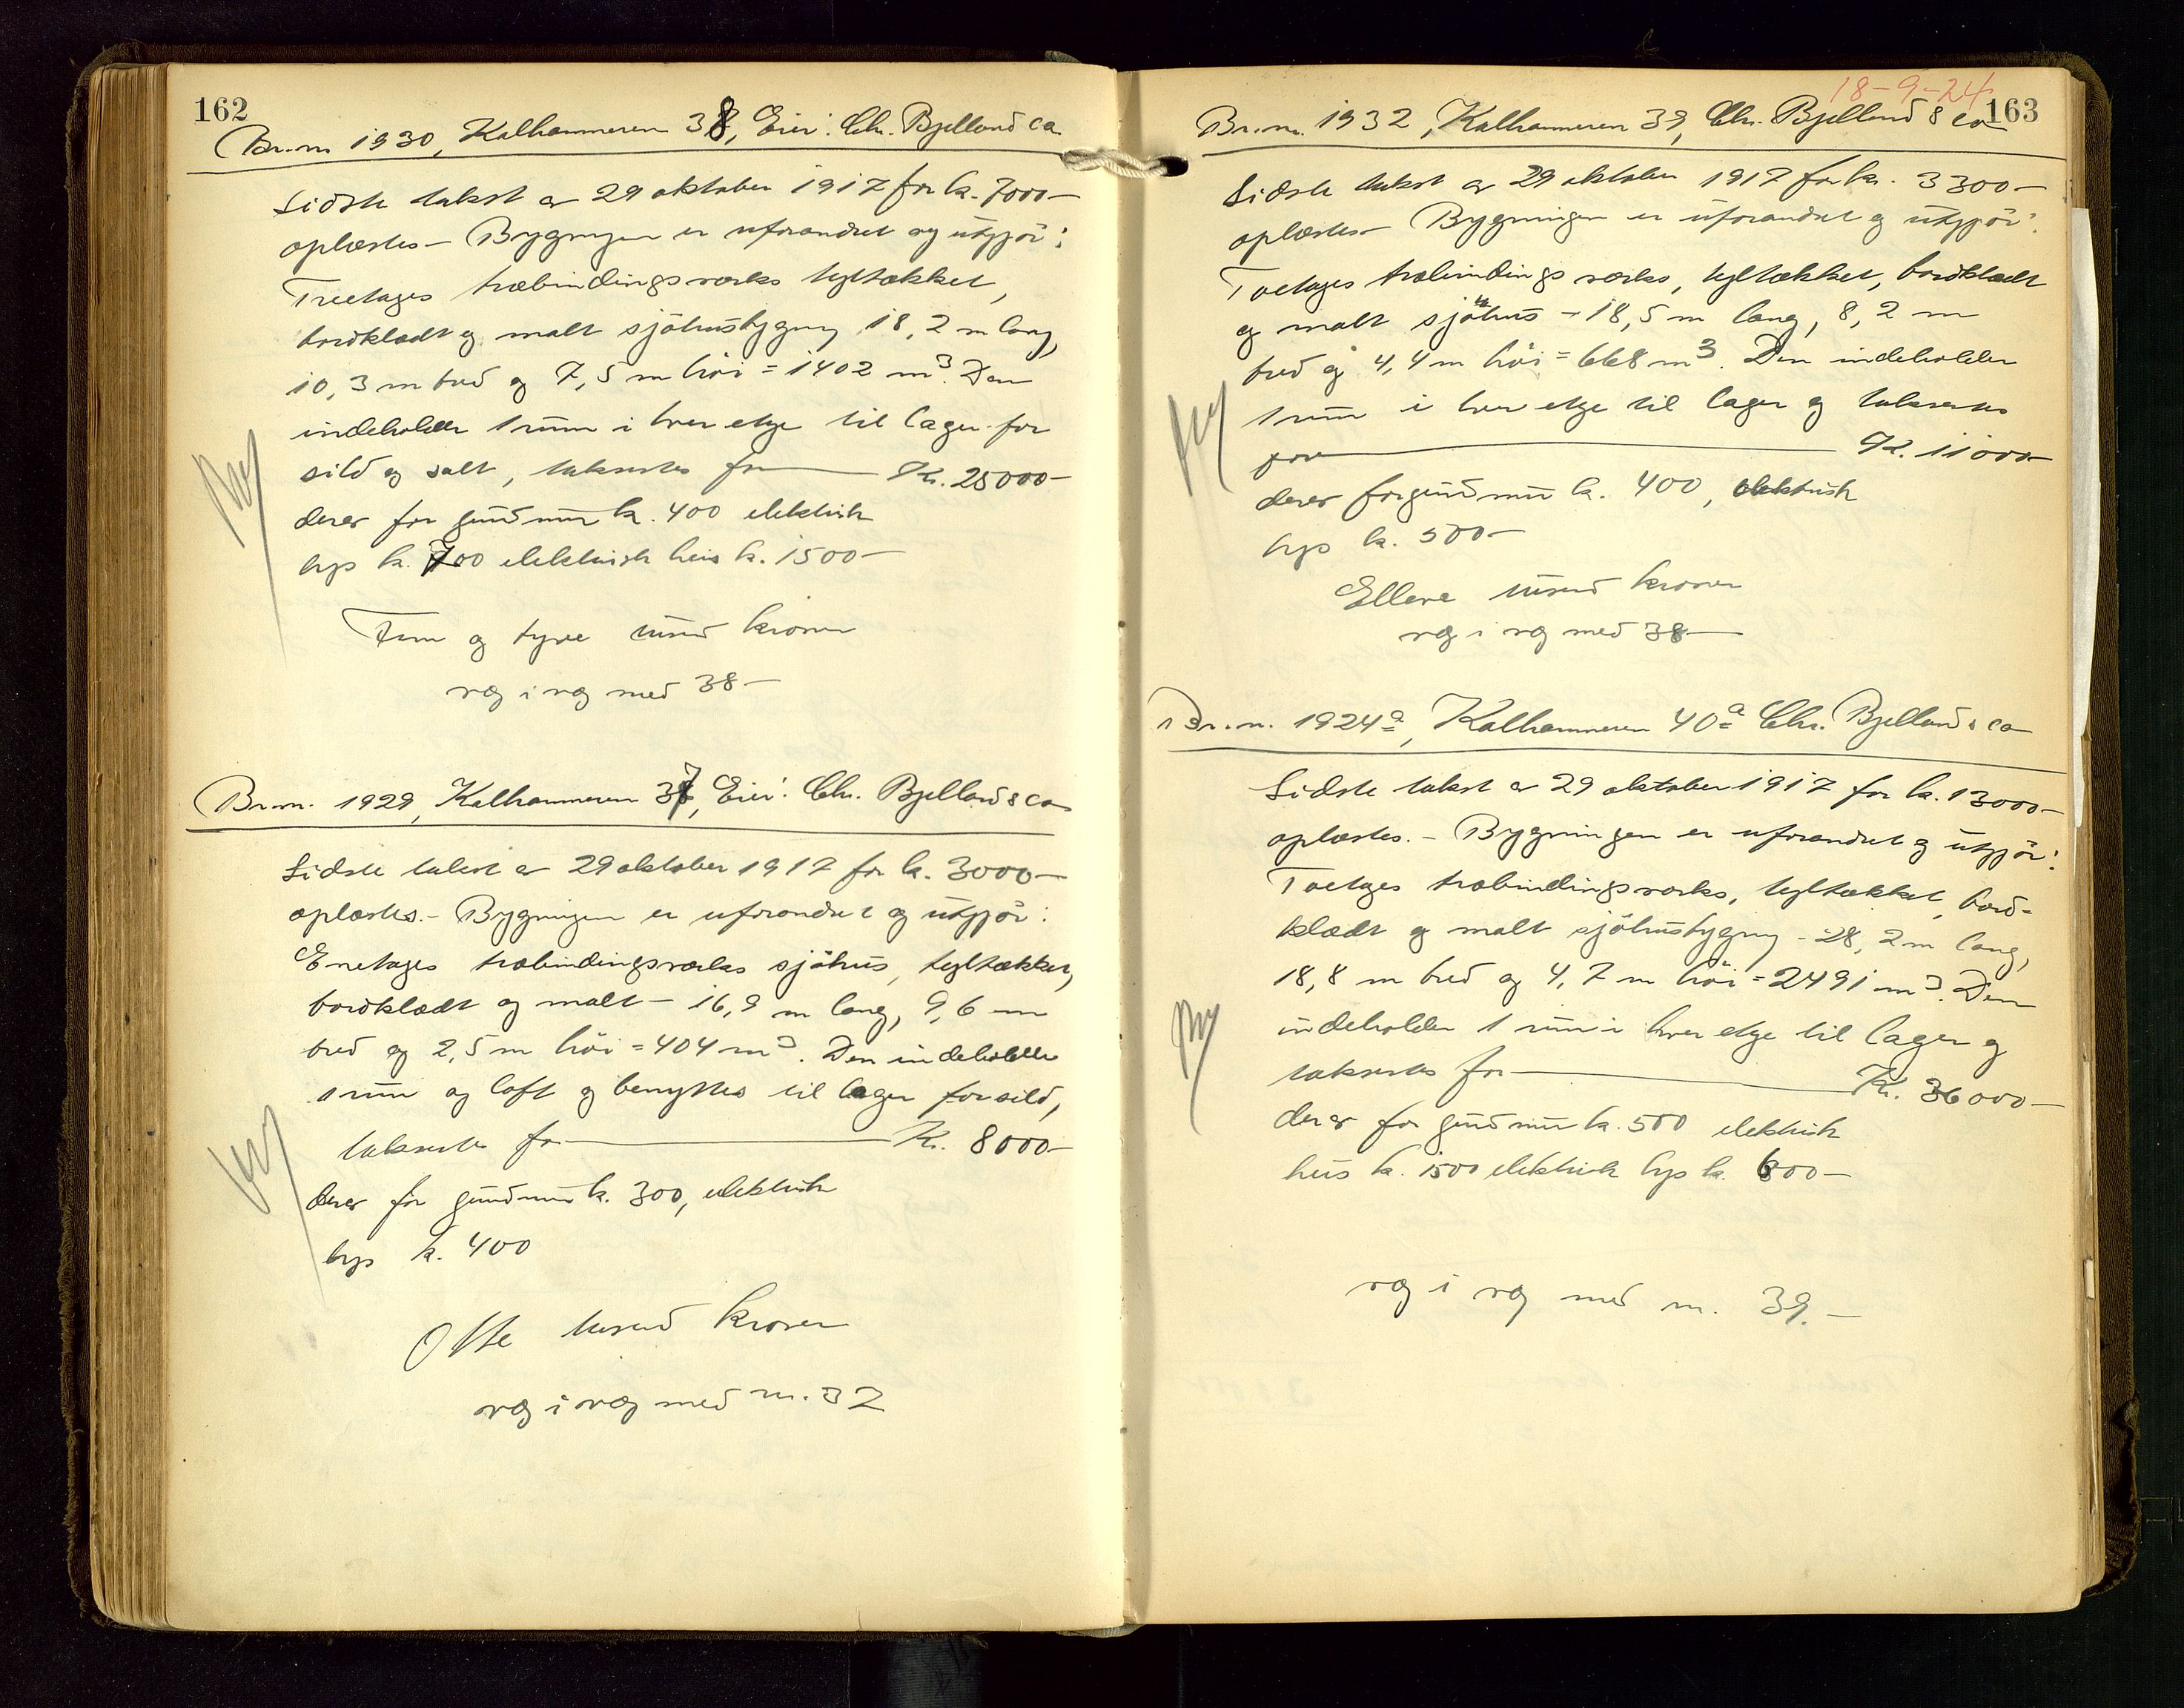 162
Br.nr. 1930, Kalhammeren 38, Eier: Chr. Bjelland & Co
Sidste takst av 29 oktober 1917 for kr. 7000-
oplæstes - Bygningen er uforandret og utgjør:
Treetages træbindingsverks tegltækket,
bordklædt og malt sjöhusbygning 18,2 m lang,
10,3 m bred og 7,5 m höi = 1402 m3. Den
indeholder 1 rum i hver etge til lager for
sild og salt, takseres for Kr. 25000-
derav for grundmur kr. 400 elektrisk
lys kr. 700 elektrisk heis kr. 1500-
Fem og tyve tusend kroner
væg i væg med 38-
Br.nr. 1929, Kalhammeren 37, Eier: Chr. Bjelland & Co
Sidste takst av 29 oktober 1917 for kr. 3000-
oplæstes.- Bygningen er uforandret og utgjör:
Enetages træbindingsværks sjöhus, tegltækket,
bordklædt og malt - 16,9 m lang, 9,6 m
bred og 2,5 m höi = 404 m3. Den indeholder
1 rum og loft og benyttes til lager for sild,
takseres for Kr. 8000-
derav for grundmur kr. 300, elektrisk
lys kr. 400
Otte tusend kroner
væg i væg med nr. 32
18-9-24
163
Br.nr. 1932, Kalhammeren 39, Chr. Bjelland & Co
Sidste takst av 29 oktober 1917 for kr. 3300-
oplæstes- Bygningen er uforandret og utgjör:
Toetages træbindingsværks, tegltækket, bordklædt
og malt sjöhus - 18,5 m lang, 8,2 m
bred og 4,4 m höi = 668 m3. Den indeholder
1 rum i hver etge til lager og takseres
for Kr. 11000-
derav for grundmur kr. 400, elektrisk
lys kr. 500-
Elleve tusend kroner
væg i væg med 38-
Br.nr. 1924a, Kalhammeren 40a Chr. Bjelland & Co
Sidste takst av 29 oktober 1917 for kr. 13000-
oplæstes. - Bygningen er uforandret og utgjör:
Toetages træbindingsværks, tegltækket, bord-
klædt og malt sjöhusbygning - 28,2 m lang,
18,8 m bred og 4,7 m höi = 2491 m3. Den
indeholder 1 rum i hver etge til lager og
takseres for Kr. 36000-
derav for grundmur kr. 500 elektrisk
heis kr. 1500 elektrisk lys kr. 600-
væg i væg med nr. 39.-